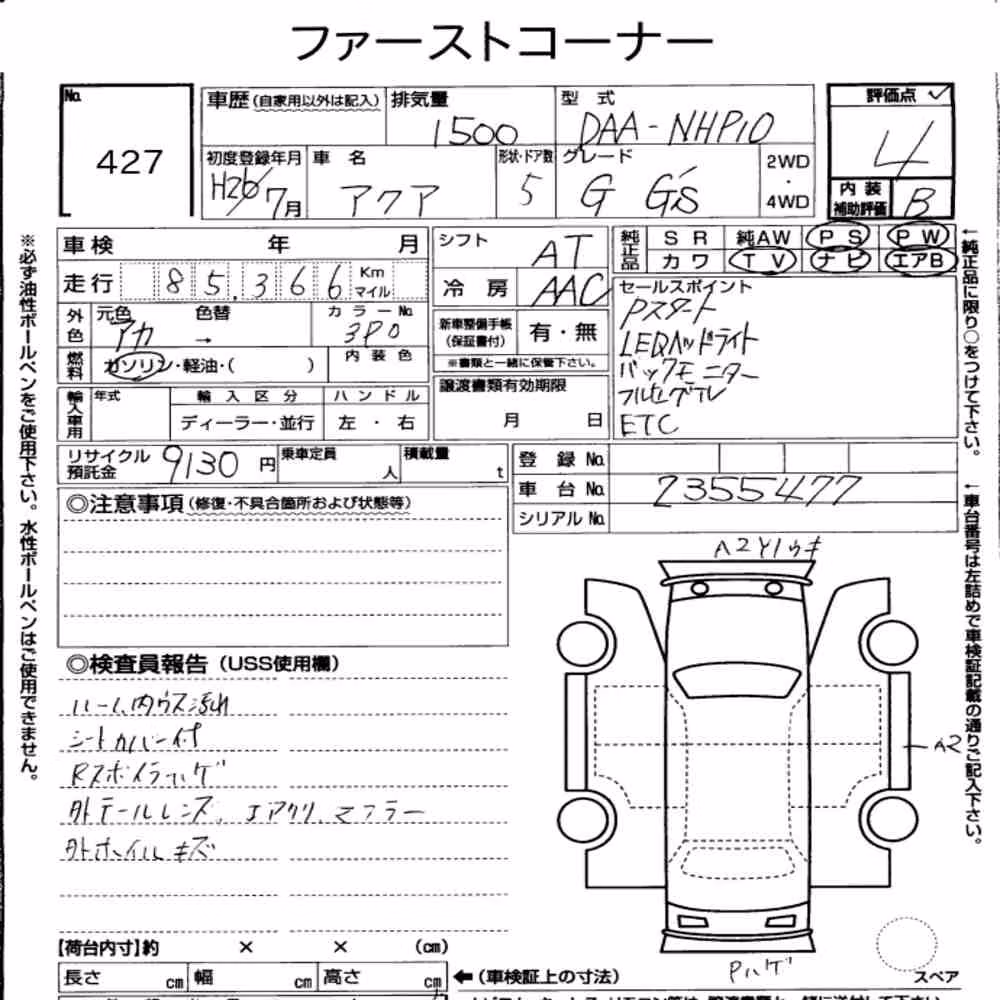 ファーストコーナー
No.
427
車歴 (自家用以外は記入)
排気量
1500
型 式
DAA-NHP10
評価点 ✓
4
初度登録年月
H26/7月
車 名
アクア
形状・ドア数
5
グレード
G G's
2WD
・
4WD
内装
補助評価
B
車検 年 月
シフト
AT
純正品
SR 純AW PS PW
カワ TV ナビ エアB
走行 85,366 Km マイル
冷房
AAC
セールスポイント
Pスタート
LEDヘッドライト
バックモニター
フルセグテレ
ETC
外色
元色
アカ
色替
→
カラーNo.
3P0
新車整備手帳
(保証書付)
有・無
※書類と一緒に保管下さい。
燃料
ガソリン・軽油・( )
内装色
譲渡書類有効期限
月 日
輸入車用
年式
輸入区分
ディーラー・並行
ハンドル
左・右
リサイクル
預託金
9130 円
乗車定員
人
積載量
t
登録No.
車台No.
2355477
シリアルNo.
◎注意事項(修復・不具合箇所および状態等)
◎検査員報告(USS使用欄)
ルーム内ウス汚れ
シートカバー付
Rスポイラーハゲ
外テールレンズ、エアクリ、マフラー
外ホイルキズ
A2
A2
Pハゲ
スペア
【荷台内寸】約 × × (cm)
長さ cm 幅 cm 高さ cm
←(車検証上の寸法)
※必ず油性ボールペンをご使用下さい。水性ボールペンはご使用できません。
←純正品に限り○をつけて下さい。
←車台番号は左詰めで車検証記載の通りご記入下さい。